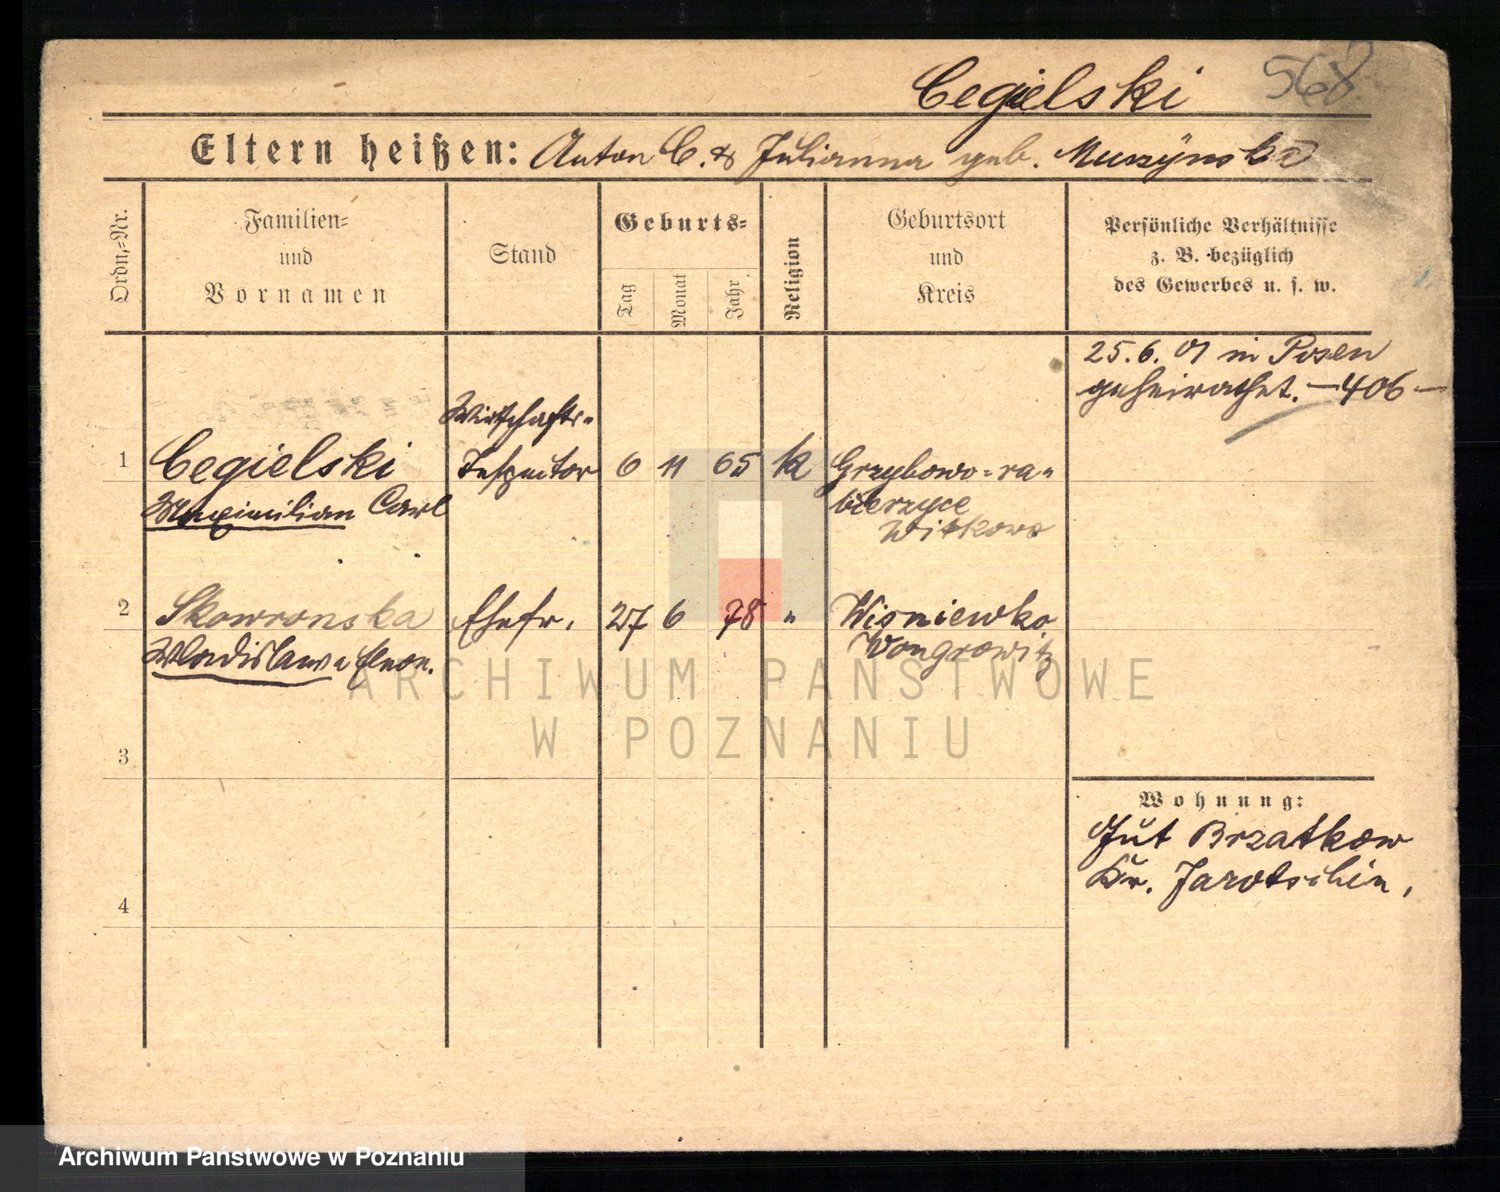 Cegielski 568
Eltern heißen: Anton C. & Julianna geb. Muszýnska
Ordn.-Nr.
Familien-
und
Vornamen
Stand
Geburts-
Tag
Monat
Jahr
Religion
Geburtsort
und
Kreis
Persönliche Verhältnisse
z. B. bezüglich
des Gewerbes u. s. w.
25.6.01 in Posen
geheirathet. —406—
Wirtschafts-
1 Cegielski Inspector 6 11 65 k Grzybowo-ra-
Maximilian Carl bierzyce
Witkowo
2 Skowronska Ehefr. 27 6 78 " Wisniewko
Wladislawa Wongrowitz
3
4
Wohnung:
Gut Brzatkow
Kr. Jarotschin.
ARCHIWUM PAŃSTWOWE
W POZNANIU
Archiwum Państwowe w Poznaniu